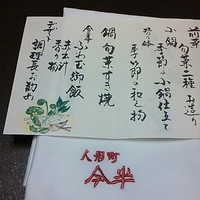 前菜 旬菜二種 お造り
小鍋 季節の小鍋仕立て
季節の和え物
鍋 旬菜すき焼
食事
ふわ玉御飯
赤出汁
香の物
デザート 調理長お勧め
人形町
今半